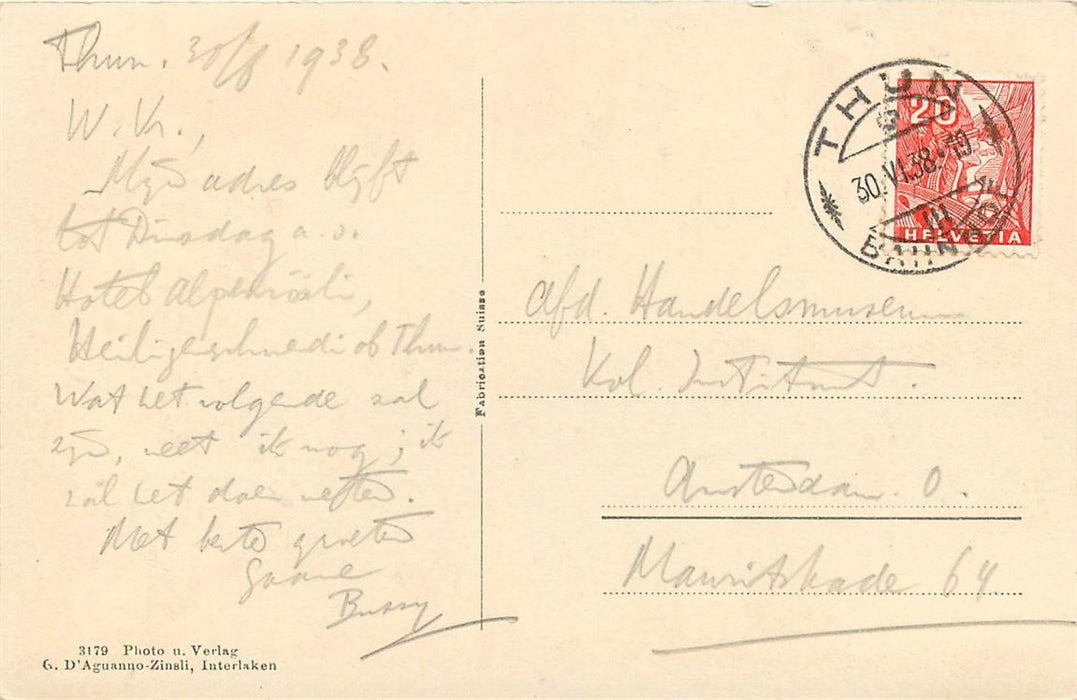 Thun. 30/6 1938.
W. Kr.,
Mijn adres blijft
tot Dinsdag a.s.
Hotel Alpenrösli,
Heiligenschwendi ob Thun.
Wat het volgende zal
zijn, weet ik nog ; ik
zal het doen weten.
Met beste groeten
Gaarne
Bussy
3179 Photo u. Verlag
G. D'Aguanno-Zinsli, Interlaken
Fabrication Suisse
THUN
30.VI.38.-19
III
BAHNHOF
20
HELVETIA
Afd. Handelsmuseum
Kol. Instituut.
Amsterdam. O.
Mauritskade 64